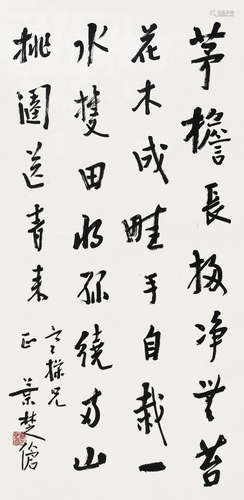 茅檐長掃净無苔
花木成畦手自栽一
水護田將綠繞兩山
排闥送青來
兄
正 葉楚傖